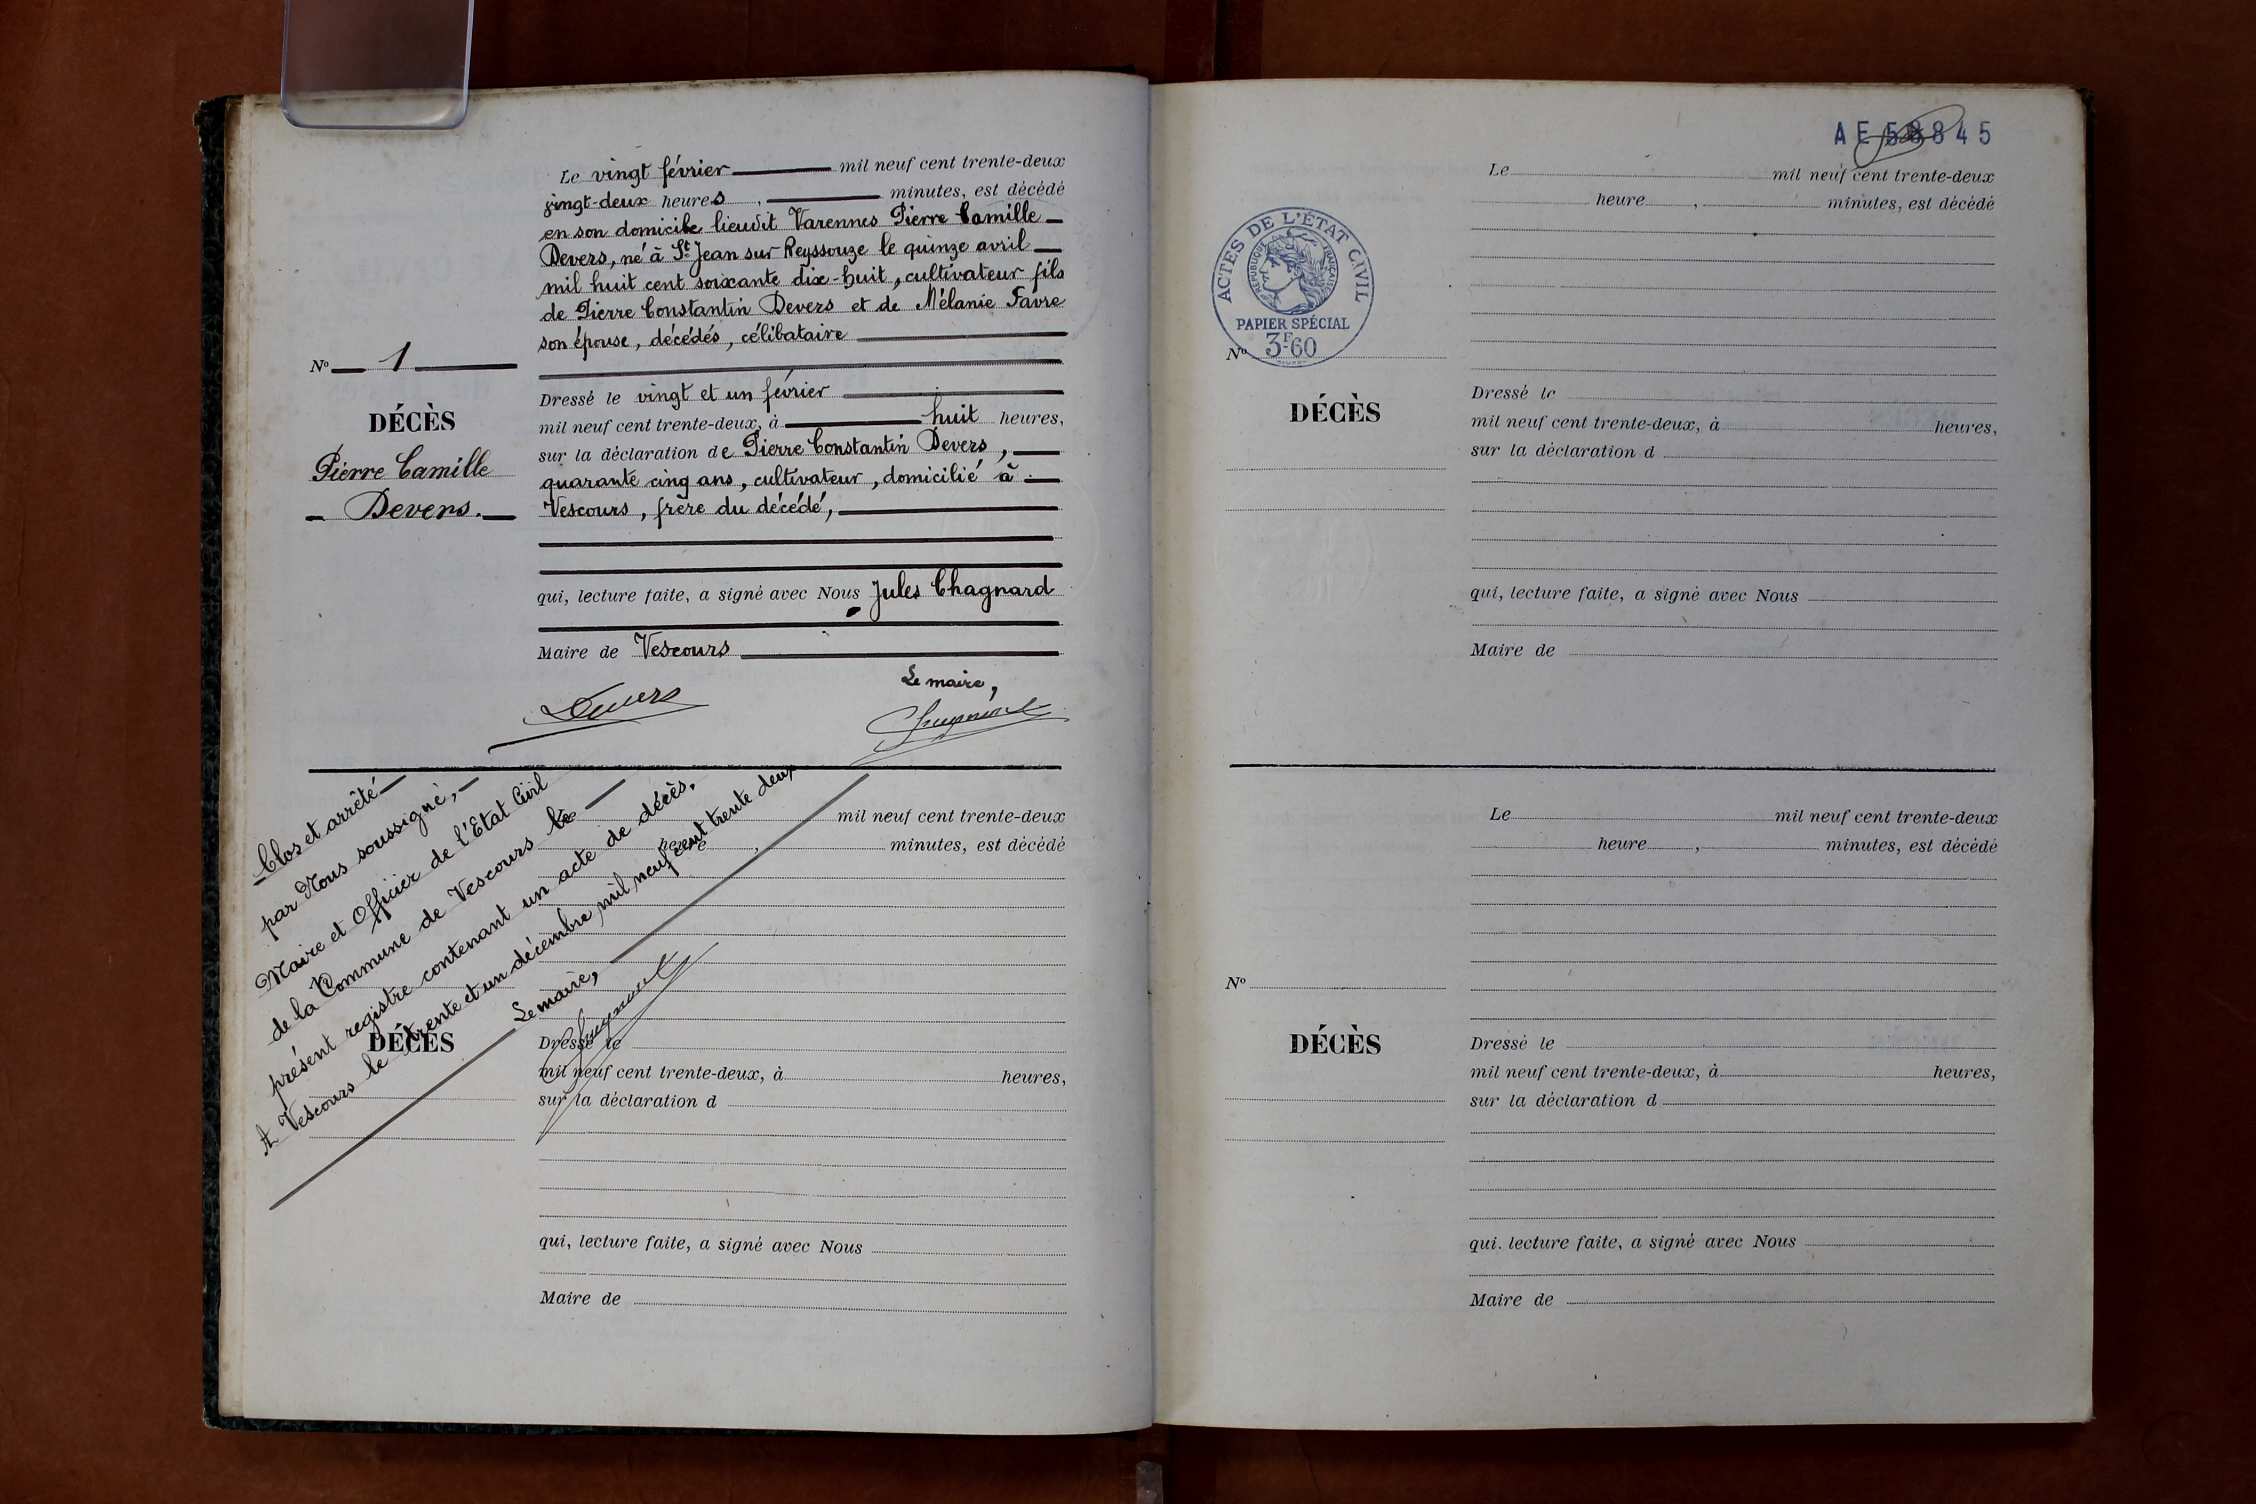 Le vingt février mil neuf cent trente-deux
vingt-deux heures , minutes, est décédé
en son domicile lieudit Varennes Pierre Camille
Devers, né à St Jean sur Reyssouze le quinze avril
mil huit cent soixante dix-huit, cultivateur fils
de Pierre Constantin Devers et de Mélanie Favre
son épouse, décédés, célibataire
No 1
DÉCÈS
Pierre Camille
Devers.
Dressé le vingt et un février
mil neuf cent trente-deux, à huit heures,
sur la déclaration de Pierre Constantin Devers,
quarante cinq ans, cultivateur, domicilié à
Vescours, frère du décédé,
qui, lecture faite, a signé avec Nous Jules Chagnard
Maire de Vescours
Le maire,
Devers
Clos et arrêté
par Nous soussigné,
Maire et Officier de l'Etat Civil
de la Commune de Vescours le
présent registre contenant un acte de décès.
A Vescours le trente et un décembre mil neuf cent trente deux
Le maire,
mil neuf cent trente-deux
heure , minutes, est décédé
DÉCÈS
Dressé le
mil neuf cent trente-deux, à heures,
sur la déclaration d
qui, lecture faite, a signé avec Nous
Maire de
AE 58845
Le mil neuf cent trente-deux
heure , minutes, est décédé
ACTES DE L'ÉTAT CIVIL
RÉPUBLIQUE FRANÇAISE
PAPIER SPÉCIAL
3F60
No
DÉCÈS
Dressé le
mil neuf cent trente-deux, à heures,
sur la déclaration d
qui, lecture faite, a signé avec Nous
Maire de
Le mil neuf cent trente-deux
heure , minutes, est décédé
No
DÉCÈS
Dressé le
mil neuf cent trente-deux, à heures,
sur la déclaration d
qui, lecture faite, a signé avec Nous
Maire de